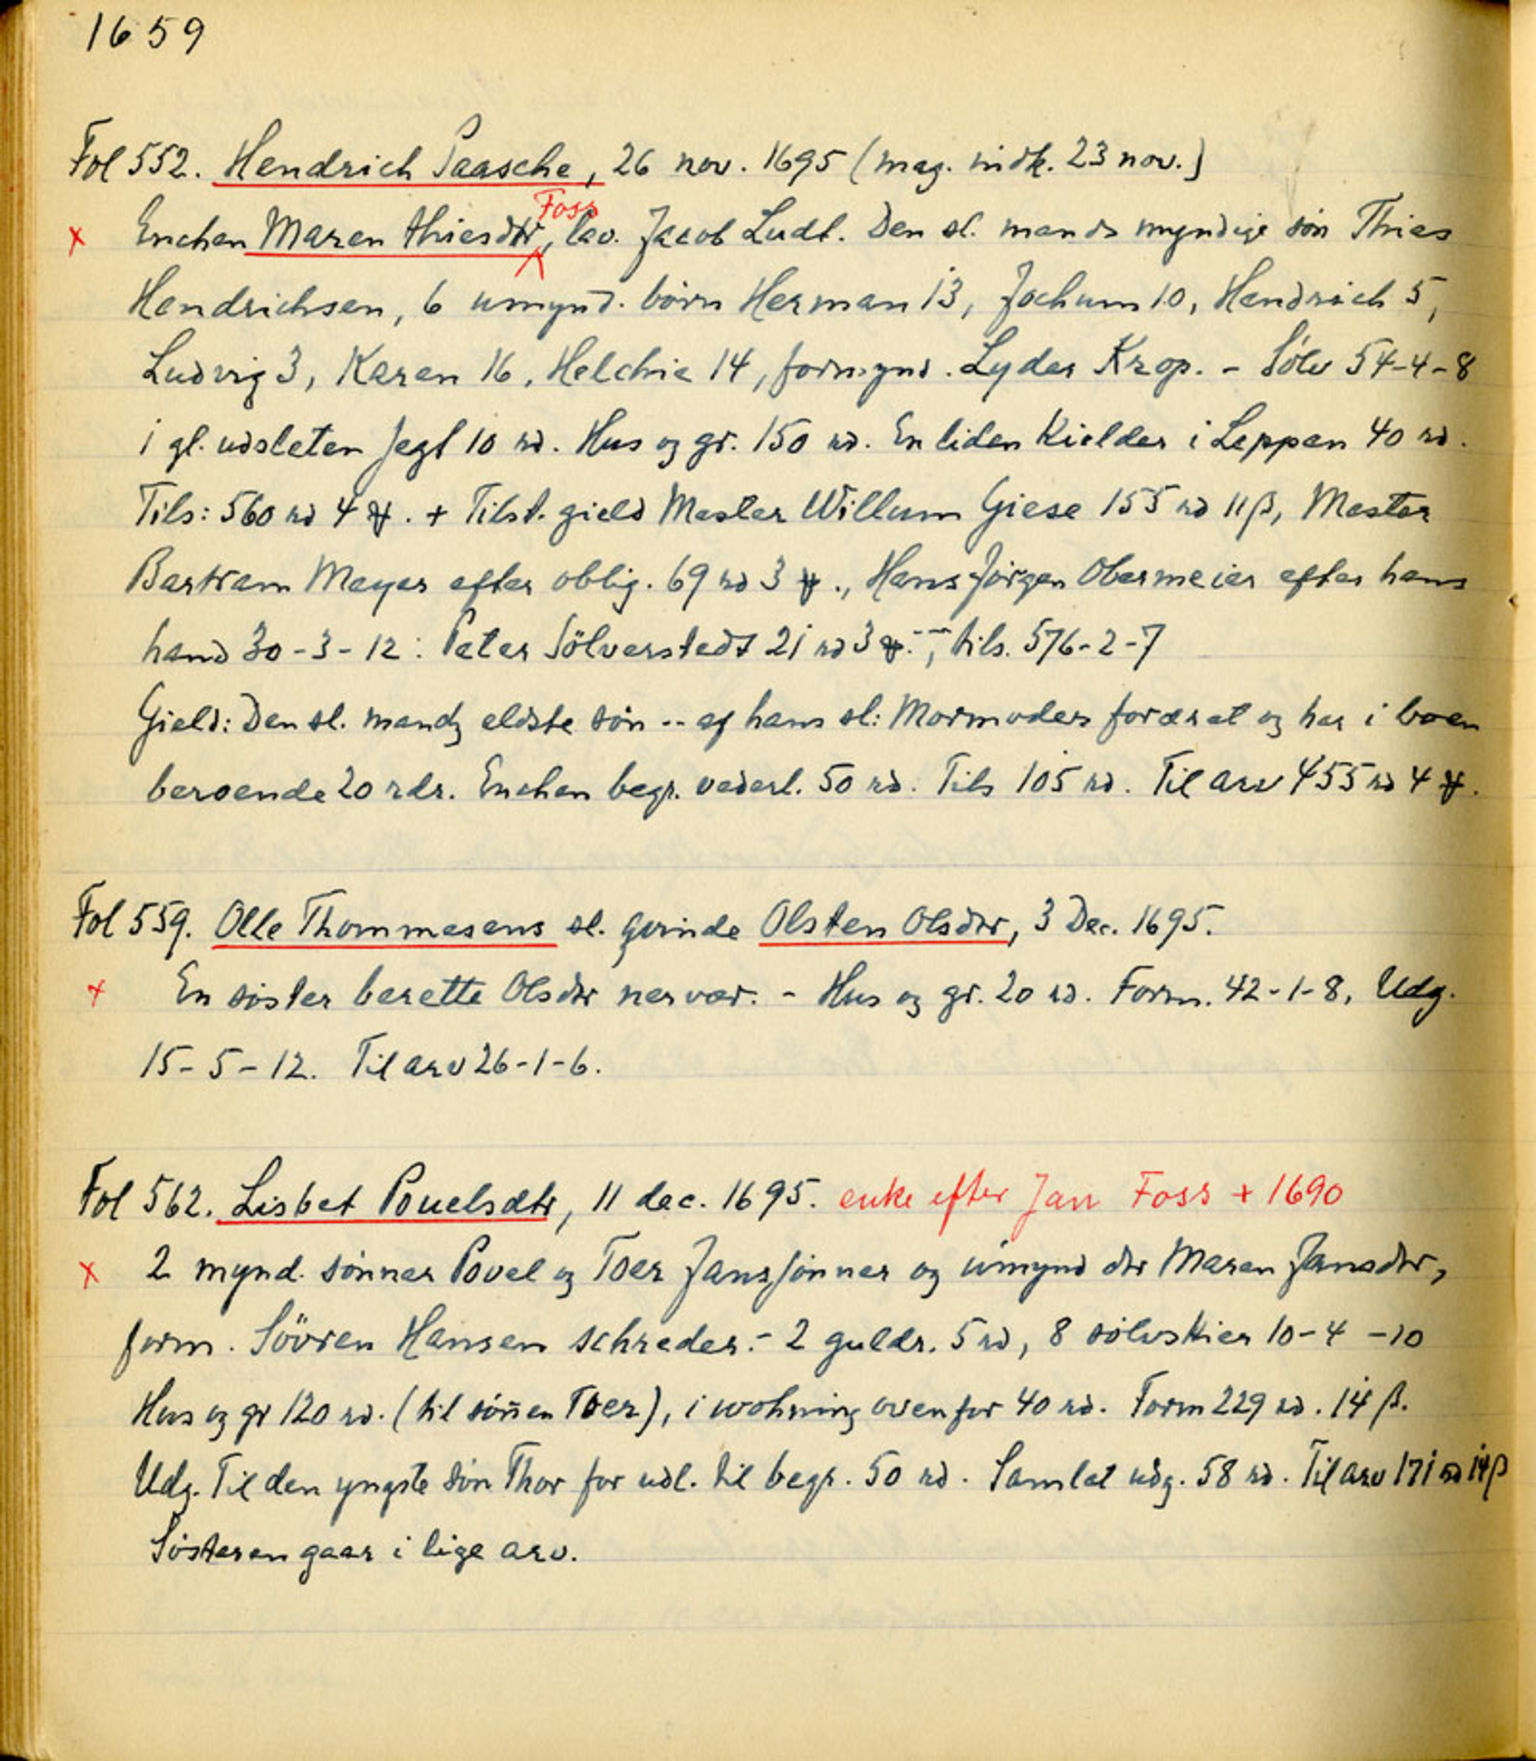 1659
Fol 552. Hendrich Paasche, 26 nov. 1695 (mag. indk. 23 nov.)
Foss
x Enchen Maren thiesdtr, lav. Jacob Ludt. Den sl. mands myndige søn Thies
Hendrichsen, 6 umynd. børn Herman 13, Jochum 10, Hendrich 5,
Ludvig 3, Karen 16, Helchie 14, formynd. Lyder Krop. - Sølv 54-4-8
i gl. udsleten Jegt 10 rd. Hus og gr. 150 rd. En liden Kielder i Leppen 40 rd.
Tils: 560 rd 4 . + Tilst. gield Mester Willum Giese 155 rd 11 β, Mester
Bartram Meyer efter oblig. 69 rd 3 ., Hans Jörgen Obermeier efter hans
hand 30-3-12: Peter Sölverstedt 21 rd 3 . --, tils. 576-2-7
Gield: Den sl. mandz eldste søn -- af hans sl: Mormoders foræret og har i boen
beroende 20 rdr. Enchen begr. vederl. 50 rd. Tils 105 rd. Til arv 455 rd 4 .
Fol 559. Olle Thommesens sl. qvinde Olsten Olsdtr, 3 Dec. 1695.
x En søster berette Olsdtr nervær. - Hus og gr. 20 rd. Form. 42-1-8, Udg.
15-5-12. Til arv 26-1-6.
Fol 562. Lisbet Pouelsdtr, 11 dec. 1695. enke efter Jan Foss + 1690
x 2 mynd. sønner Povel og Toer Janssønner og umynd dtr Maren Jansdtr,
form. Sövren Hansen schreder. - 2 guldr. 5 rd, 8 sølvskier 10-4-10
Hus og gr 120 rd. (til sønen Toer), i wohning ovenfor 40 rd. Form 229 rd. 14 β.
Udg. Til den yngste søn Thor for udl. til begr. 50 rd. Samlet udg. 58 rd. Til arv 171 rd 14 β
Søsteren gaar i lige arv.